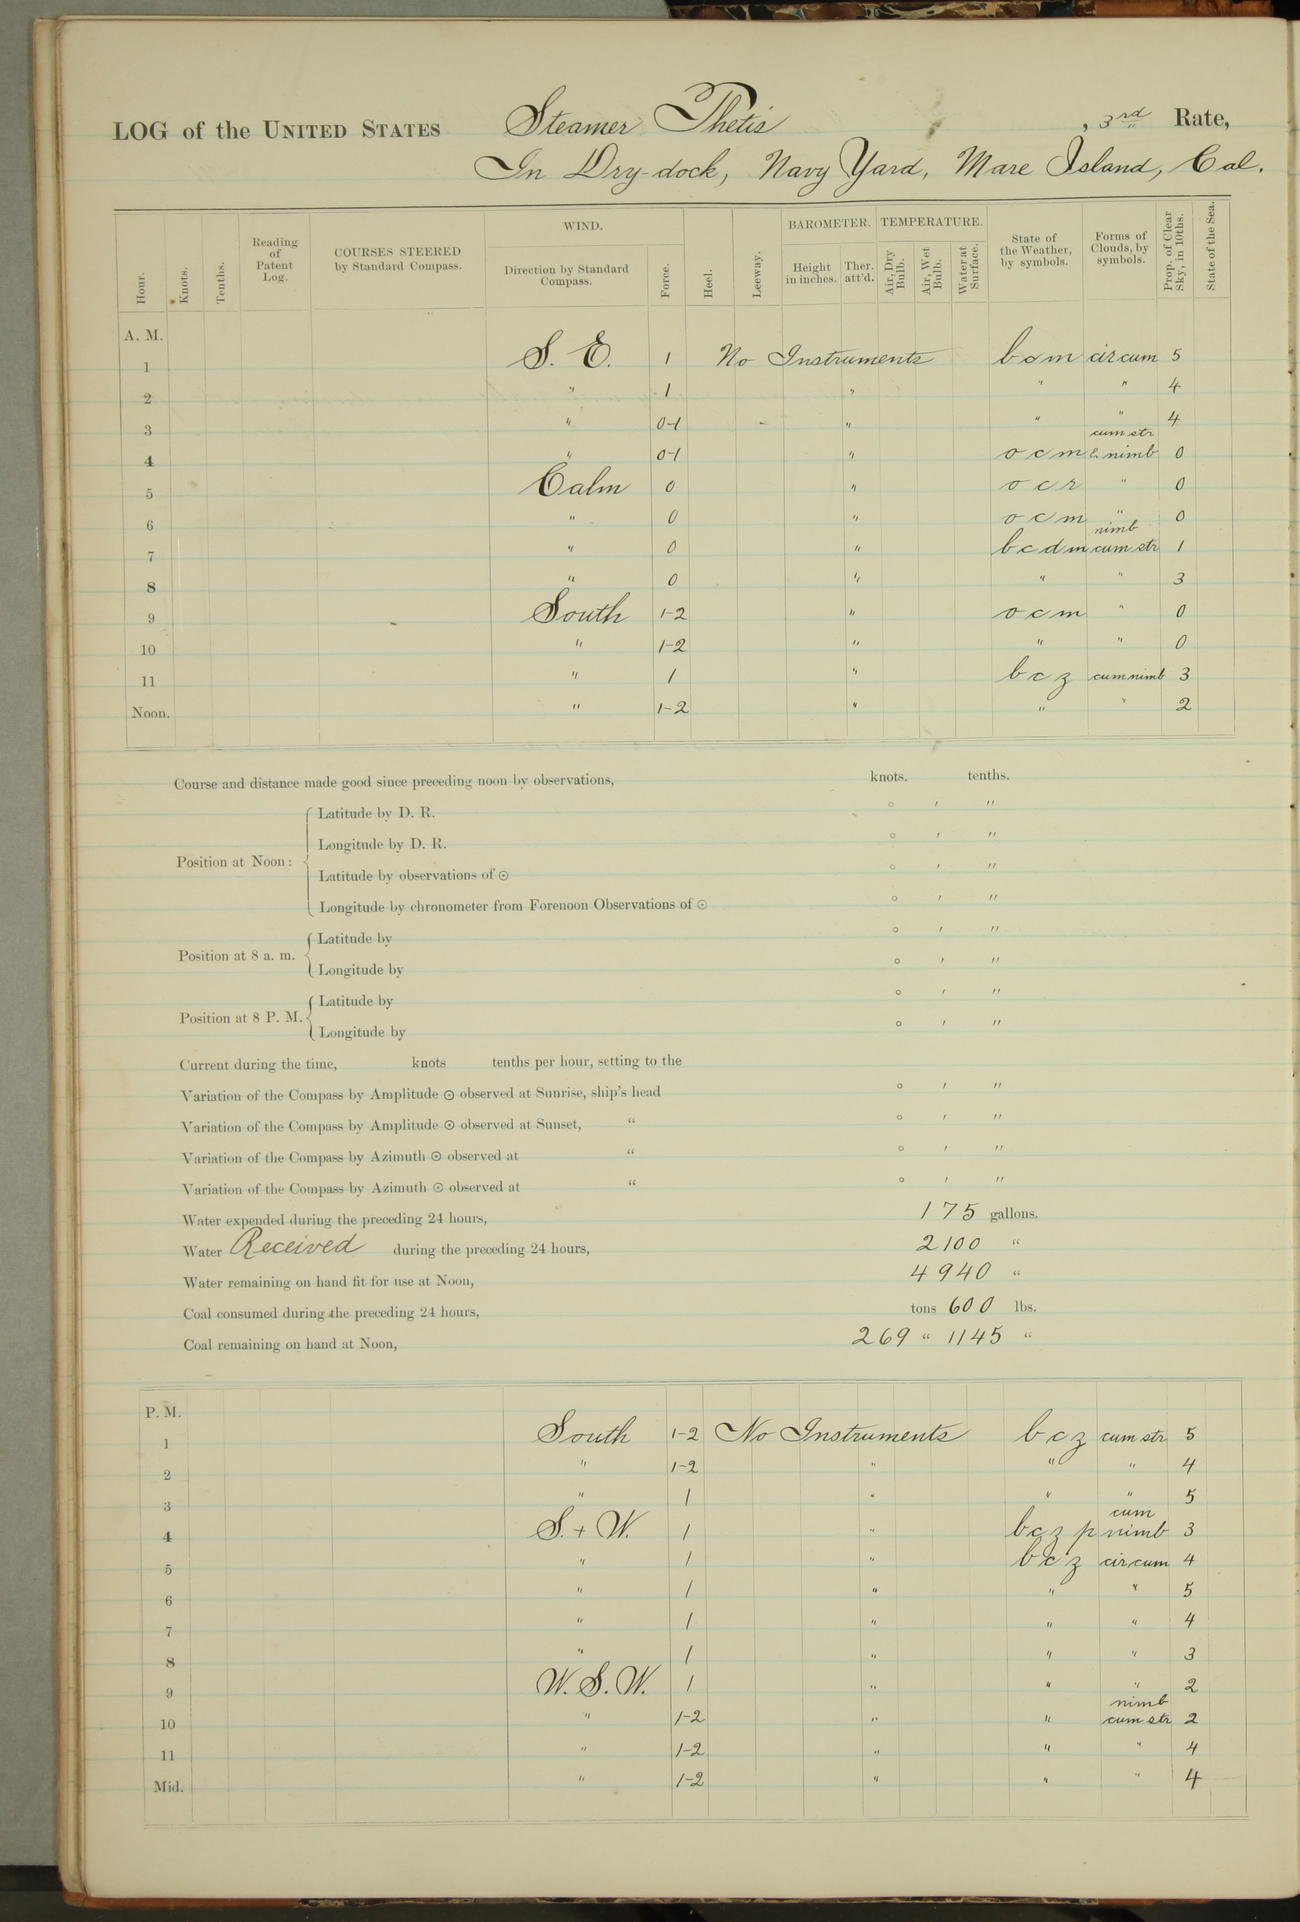 LOG of the UNITED STATES Steamer Thetis , 3rd Rate,
In Dry-dock, Navy Yard, Mare Island, Cal.
Hour. Knots. Tenths. Reading of Patent Log. COURSES STEERED by Standard Compass. WIND. Direction by Standard Compass. Force. Heel. Leeway. BAROMETER. Height in inches. Ther. att'd. TEMPERATURE. Air, Dry Bulb. Air, Wet Bulb. Water at Surface. State of the Weather, by symbols. Forms of Clouds, by symbols. Prop. of Clear Sky, in 10ths. State of the Sea.
A. M.
1 S. E. 1 No Instruments b c m cir cum 5
2 " 1 " " " 4
3 " 0-1 " " " 4
cum str
4 " 0-1 " o c m & nimb 0
5 Calm 0 " o c r " 0
6 " 0 " o c m " 0
nimb
7 " 0 " b c d m cum str 1
8 " 0 " " " 3
9 South 1-2 " o c m " 0
10 " 1-2 " " " 0
11 " 1 " b c z cum nimb 3
Noon. " 1-2 " " " 2
Course and distance made good since preceding noon by observations, knots. tenths.
Position at Noon: Latitude by D. R. ° ′ ″
Longitude by D. R. ° ′ ″
Latitude by observations of ☉ ° ′ ″
Longitude by chronometer from Forenoon Observations of ☉ ° ′ ″
Position at 8 a. m. Latitude by ° ′ ″
Longitude by ° ′ ″
Position at 8 P. M. Latitude by ° ′ ″
Longitude by ° ′ ″
Current during the time, knots tenths per hour, setting to the
Variation of the Compass by Amplitude ☉ observed at Sunrise, ship's head ° ′ ″
Variation of the Compass by Amplitude ☉ observed at Sunset, " ° ′ ″
Variation of the Compass by Azimuth ☉ observed at " ° ′ ″
Variation of the Compass by Azimuth ☉ observed at " ° ′ ″
Water expended during the preceding 24 hours, 175 gallons.
Water Received during the preceding 24 hours, 2100 "
Water remaining on hand fit for use at Noon, 4940 "
Coal consumed during the preceding 24 hours, tons 600 lbs.
Coal remaining on hand at Noon, 269 " 1145 "
P. M.
1 South 1-2 No Instruments b c z cum str 5
2 " 1-2 " " " 4
3 " 1 " " " 5
cum
4 S. + W. 1 " b c z p nimb 3
5 " 1 " b c z cir cum 4
6 " 1 " " " 5
7 " 1 " " " 4
8 " 1 " " " 3
9 W. S. W. 1 " " " 2
nimb
10 " 1-2 " " cum str 2
11 " 1-2 " " " 4
Mid. " 1-2 " " " 4